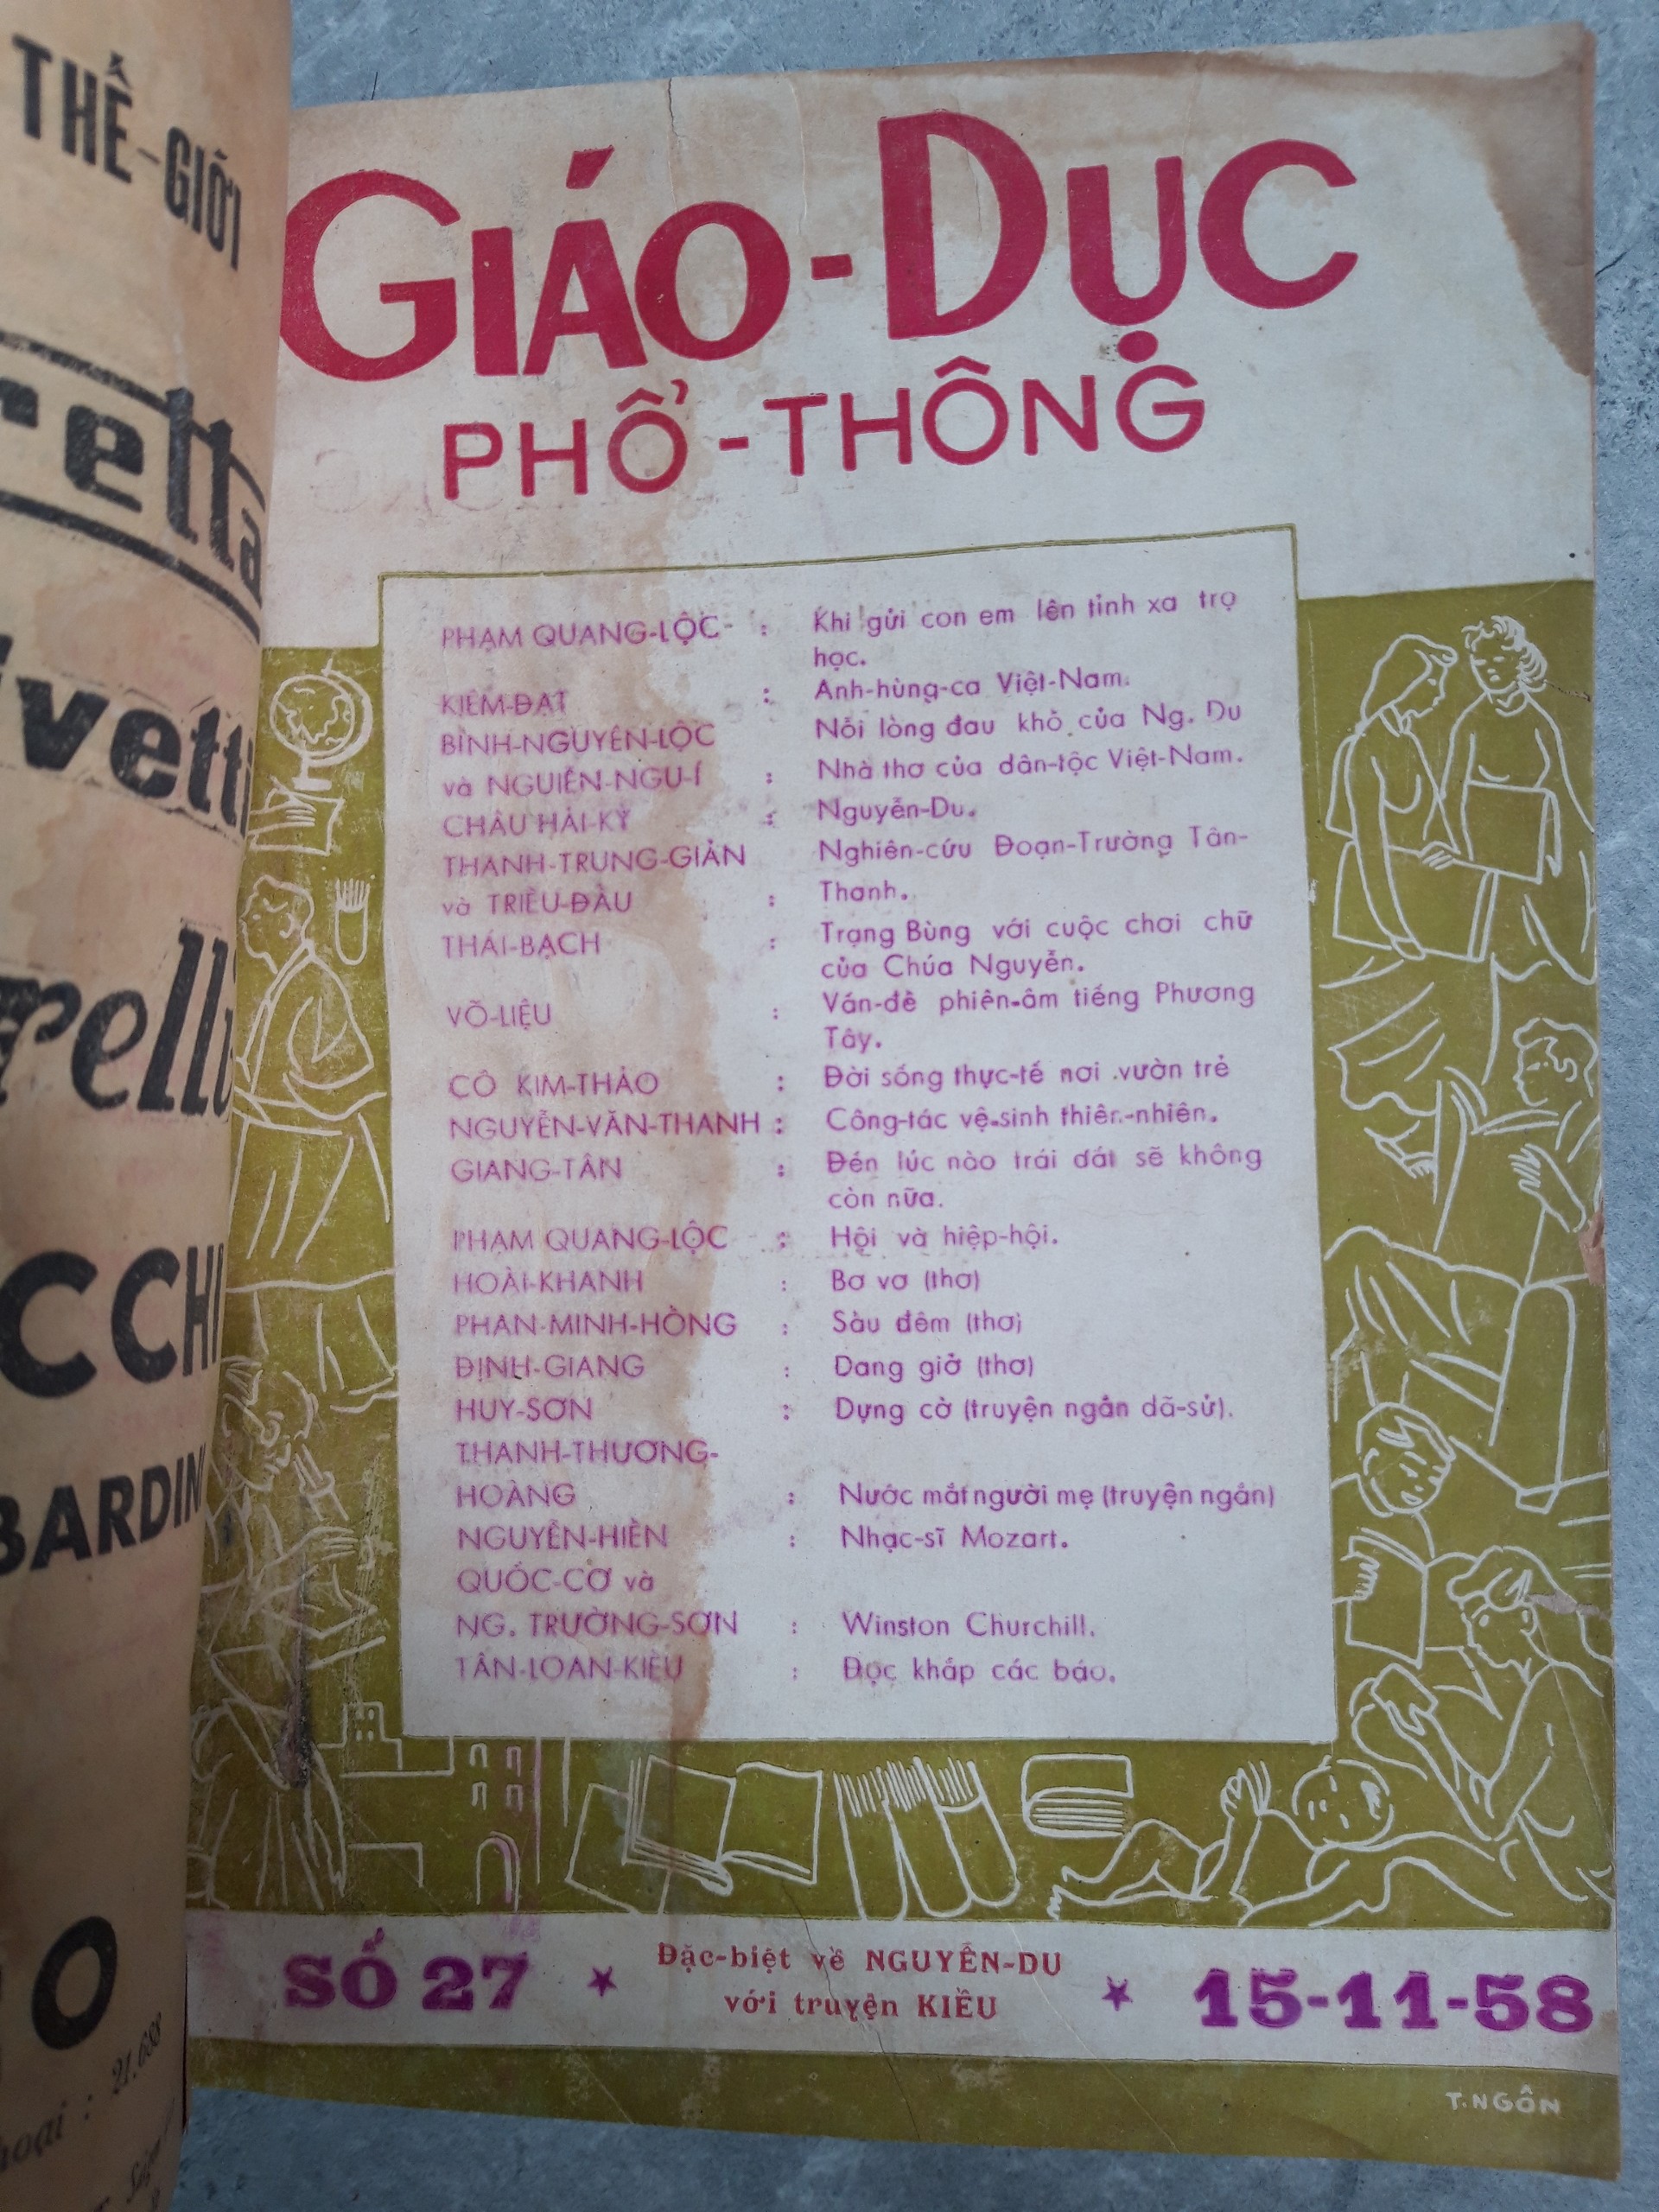 THẾ-GIỚI
GIÁO-DỤC
PHỔ-THÔNG
PHẠM QUANG-LỘC : Khi gửi con em lên tỉnh xa trọ
học.
KIÊM-ĐẠT : Anh-hùng-ca Việt-Nam.
BÌNH-NGUYÊN-LỘC Nỗi lòng đau khổ của Ng. Du
và NGUIỄN-NGU-Í : Nhà thơ của dân-tộc Việt-Nam.
CHÂU HẢI-KỲ : Nguyễn-Du.
THANH-TRUNG-GIẢN Nghiên-cứu Đoạn-Trường Tân-
và TRIỀU-ĐẨU : Thanh.
THÁI-BẠCH : Trạng Bùng với cuộc chơi chữ
của Chúa Nguyễn.
VÕ-LIỆU : Vấn-đề phiên-âm tiếng Phương
Tây.
CÔ KIM-THẢO : Đời sống thực-tế nơi vườn trẻ
NGUYỄN-VĂN-THANH : Công-tác vệ-sinh thiên-nhiên.
GIANG-TÂN : Đến lúc nào trái đất sẽ không
còn nữa.
PHẠM QUANG-LỘC : Hội và hiệp-hội.
HOÀI-KHANH : Bơ vơ (thơ)
PHAN-MINH-HỒNG : Sầu đêm (thơ)
ĐỊNH-GIANG : Dang giở (thơ)
HUY-SƠN : Dựng cờ (truyện ngắn dã-sử).
THANH-THƯƠNG-
HOÀNG : Nước mắt người mẹ (truyện ngắn)
NGUYỄN-HIỀN : Nhạc-sĩ Mozart.
QUỐC-CƠ và
NG. TRƯỜNG-SƠN : Winston Churchill.
TÂN-LOAN-KIỀU : Đọc khắp các báo.
SỐ 27 ★ Đặc-biệt về NGUYỄN-DU
với truyện KIỀU ★ 15-11-58
T.NGÔN
21.688